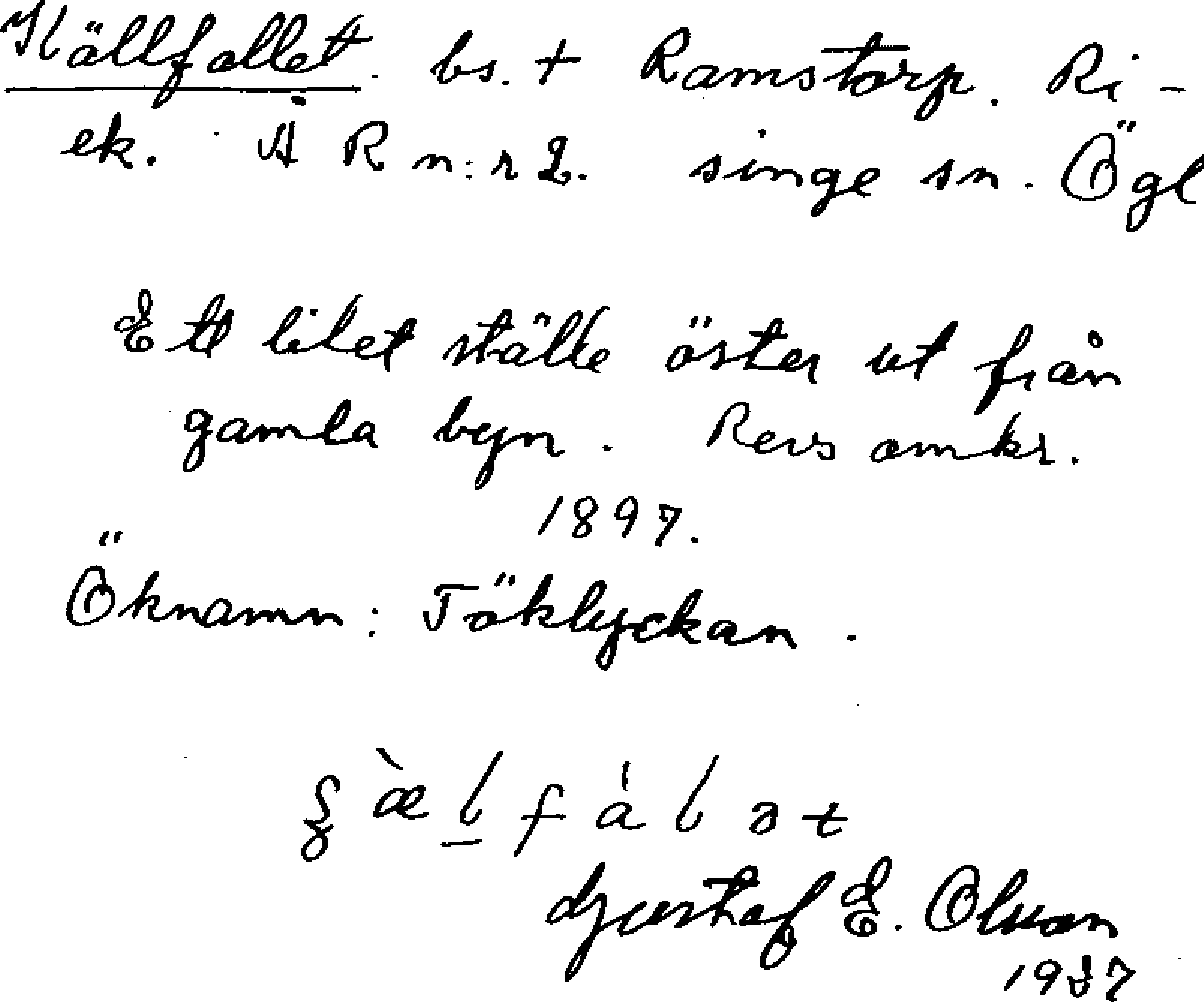 Källfallet. bs. + Ramstorp. Ri-
ek. Ä R n:r 2. singe sn. Ögl
Ett litet ställe öster ut från
gamla byn. Revs omkr.
1897.
Öknamn: Töklyckan.
àe l f á l ə t
Gustaf E. Olson
1937